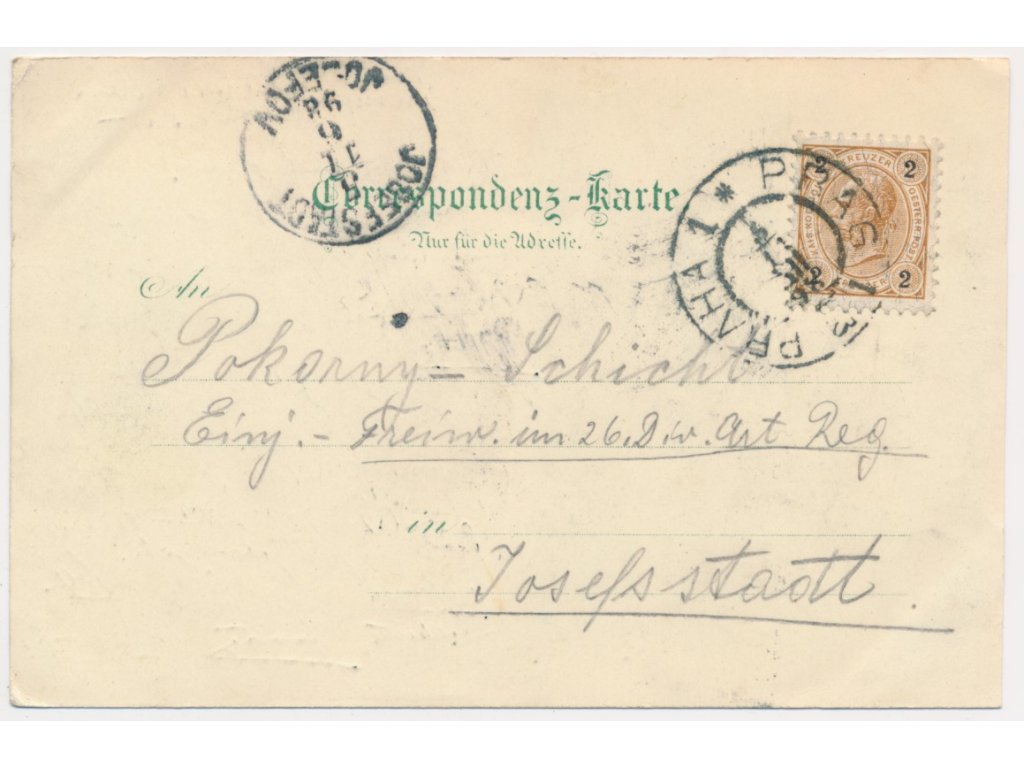 JOSEFOV
JOSEFSTADT
11
6
98
8
PRAG 1
PRAHA 1
2 KREUZER 2
OESTERR. POST
2 2
Correspondenz-Karte
Nur für die Adresse.
An
Pokorny - Schicht
Einj. - Freiw. im 26. Div. Art Reg.
in
Josefsstadt.